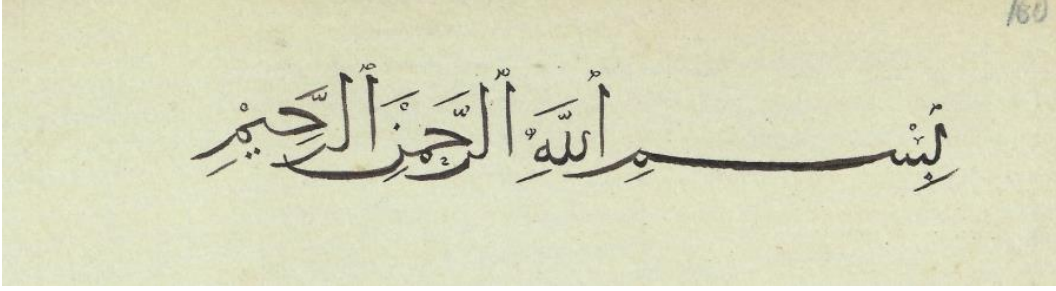 180
بِسْمِ ٱللَّهِ ٱلرَّحْمَنِ ٱلرَّحِيْمِ